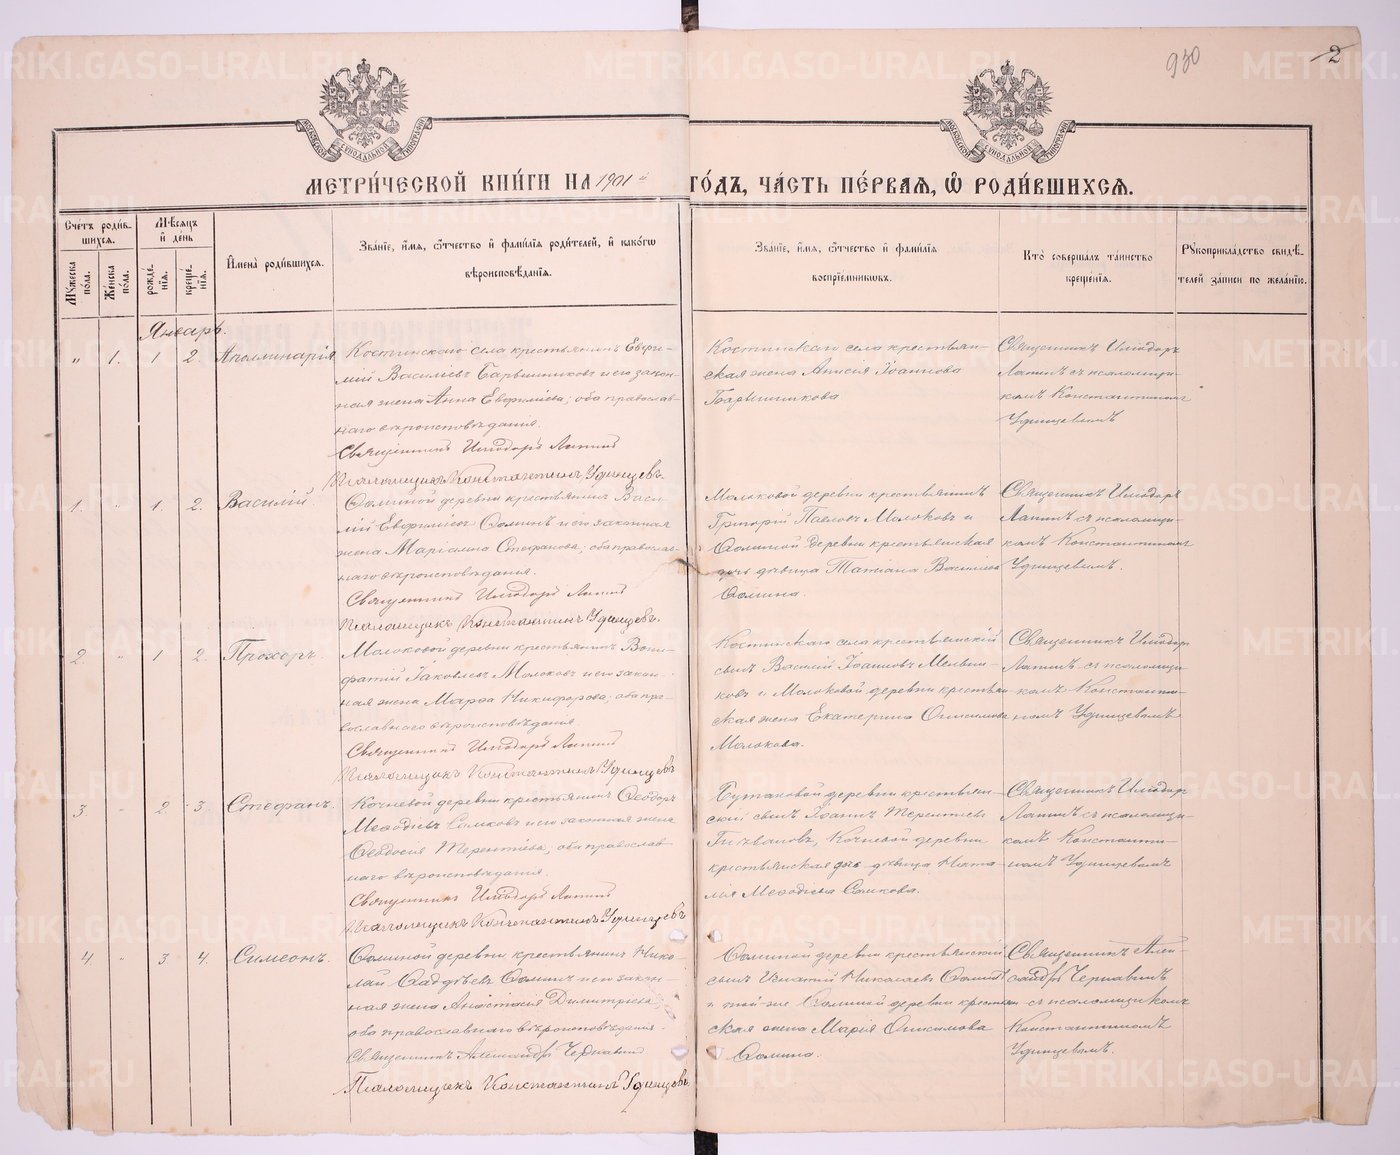 930
2
МОСКОВСКОЙ СѴНОДАЛЬНОЙ ТИПОГРАФІИ
МОСКОВСКОЙ СѴНОДАЛЬНОЙ ТИПОГРАФІИ
МЕТРИ́ЧЕСКОЙ КНИ́ГИ НА 1901 й ГО́ДЪ, ЧА́СТЬ ПЕ́РВАЯ, Ѡ РОДИ́ВШИХСЯ.
Счетъ роди́в-
шихся.
Му́жеска по́ла.
Же́нска по́ла.
Мѣ́сяцъ
и҆ де́нь
рожде́нія.
креще́нія.
И҆мена̀ роди́вшихся.
Зва́ніе, и҆́мя, ѻ҆́тчество и҆ фами́лія роди́телей, и҆ како́гѡ
вѣроисповѣ́данія.
Зва́ніе, и҆́мя, ѻ҆́тчество и҆ фами́лія
воспріе́мниковъ.
Кто̀ соверша́лъ та́инство
креще́нія.
Рꙋкоприкла́дство свидѣ́-
телей за́писи по жела́нію.
Январь.
" 1. 1 2. Аполлинарія
Костинскаго села крестьянинъ Евфи-
мій Василіевъ Барышниковъ и его закон-
ная жена Анна Евфиміева; оба православ-
наго вѣроисповѣданія.
Священникъ Иліодоръ Лапинъ
Псаломщикъ Константинъ Удинцевъ.
Костинскаго села крестьян-
ская жена Анисія Іоаннова
Барышникова
Священникъ Иліодоръ
Лапинъ съ псаломщи-
комъ Константиномъ
Удинцевымъ
1. " 1. 2. Василій
Ѳоминой деревни крестьянинъ Васи-
лій Евфиміевъ Ѳоминъ и его законная
жена Маріамна Стефанова; оба православ-
наго вѣроисповѣданія.
Священникъ Иліодоръ Лапинъ
Псаломщикъ Константинъ Удинцевъ.
Молоковой деревни крестьянинъ
Григорій Павловъ Молоковъ и
Ѳоминой деревни крестьянская
дочь дѣвица Татіана Василіева
Ѳомина.
Священникъ Иліодоръ
Лапинъ съ псаломщи-
комъ Константиномъ
Удинцевымъ.
2. " 1 2. Прохоръ.
Молоковой деревни крестьянинъ Вони-
фатій Іаковлевъ Молоковъ и его закон-
ная жена Марѳа Никифорова; оба пра-
вославнаго вѣроисповѣданія.
Священникъ Иліодоръ Лапинъ
Псаломщикъ Константинъ Удинцевъ
Костинскаго села крестьянскій
сынъ Василій Іоанновъ Мельни-
ковъ и Молоковой деревни крестьян-
ская жена Екатерина Онисимова
Молокова.
Священникъ Иліодоръ
Лапинъ съ псаломщи-
комъ Константи-
номъ Удинцевымъ
3. " 2. 3. Стефанъ.
Кочневой деревни крестьянинъ Ѳеодоръ
Меѳодіевъ Самковъ и его законная жена
Ѳеодосія Терентіева; оба православ-
наго вѣроисповѣданія.
Священникъ Иліодоръ Лапинъ
Псаломщикъ Константинъ Удинцевъ
деревни крестьян-
скій сынъ Іоаннъ Терентіевъ
Кочневой деревни
крестьянская дочь дѣвица Ната-
лія Меѳодіева Самкова.
Священникъ Иліодоръ
Лапинъ съ псаломщи-
комъ Константи-
номъ Удинцевымъ
4. " 3 4. Симеонъ.
Ѳоминой деревни крестьянинъ Нико-
лай Ѳаддѣевъ Ѳоминъ и его закон-
ная жена Анастасія Димитріева;
оба православнаго вѣроисповѣданія.
Священникъ Александръ Чернавинъ
Псаломщикъ Константинъ Удинцевъ.
Ѳоминой деревни крестьянскій
сынъ Игнатій Николаевъ Ѳоминъ
и той-же Ѳоминой деревни крестьян-
ская жена Марія Онисимова
Ѳомина.
Священникъ Алек-
сандръ Чернавинъ
съ псаломщикомъ
Константиномъ
Удинцевымъ.
METRIKI.GASO-URAL.RU